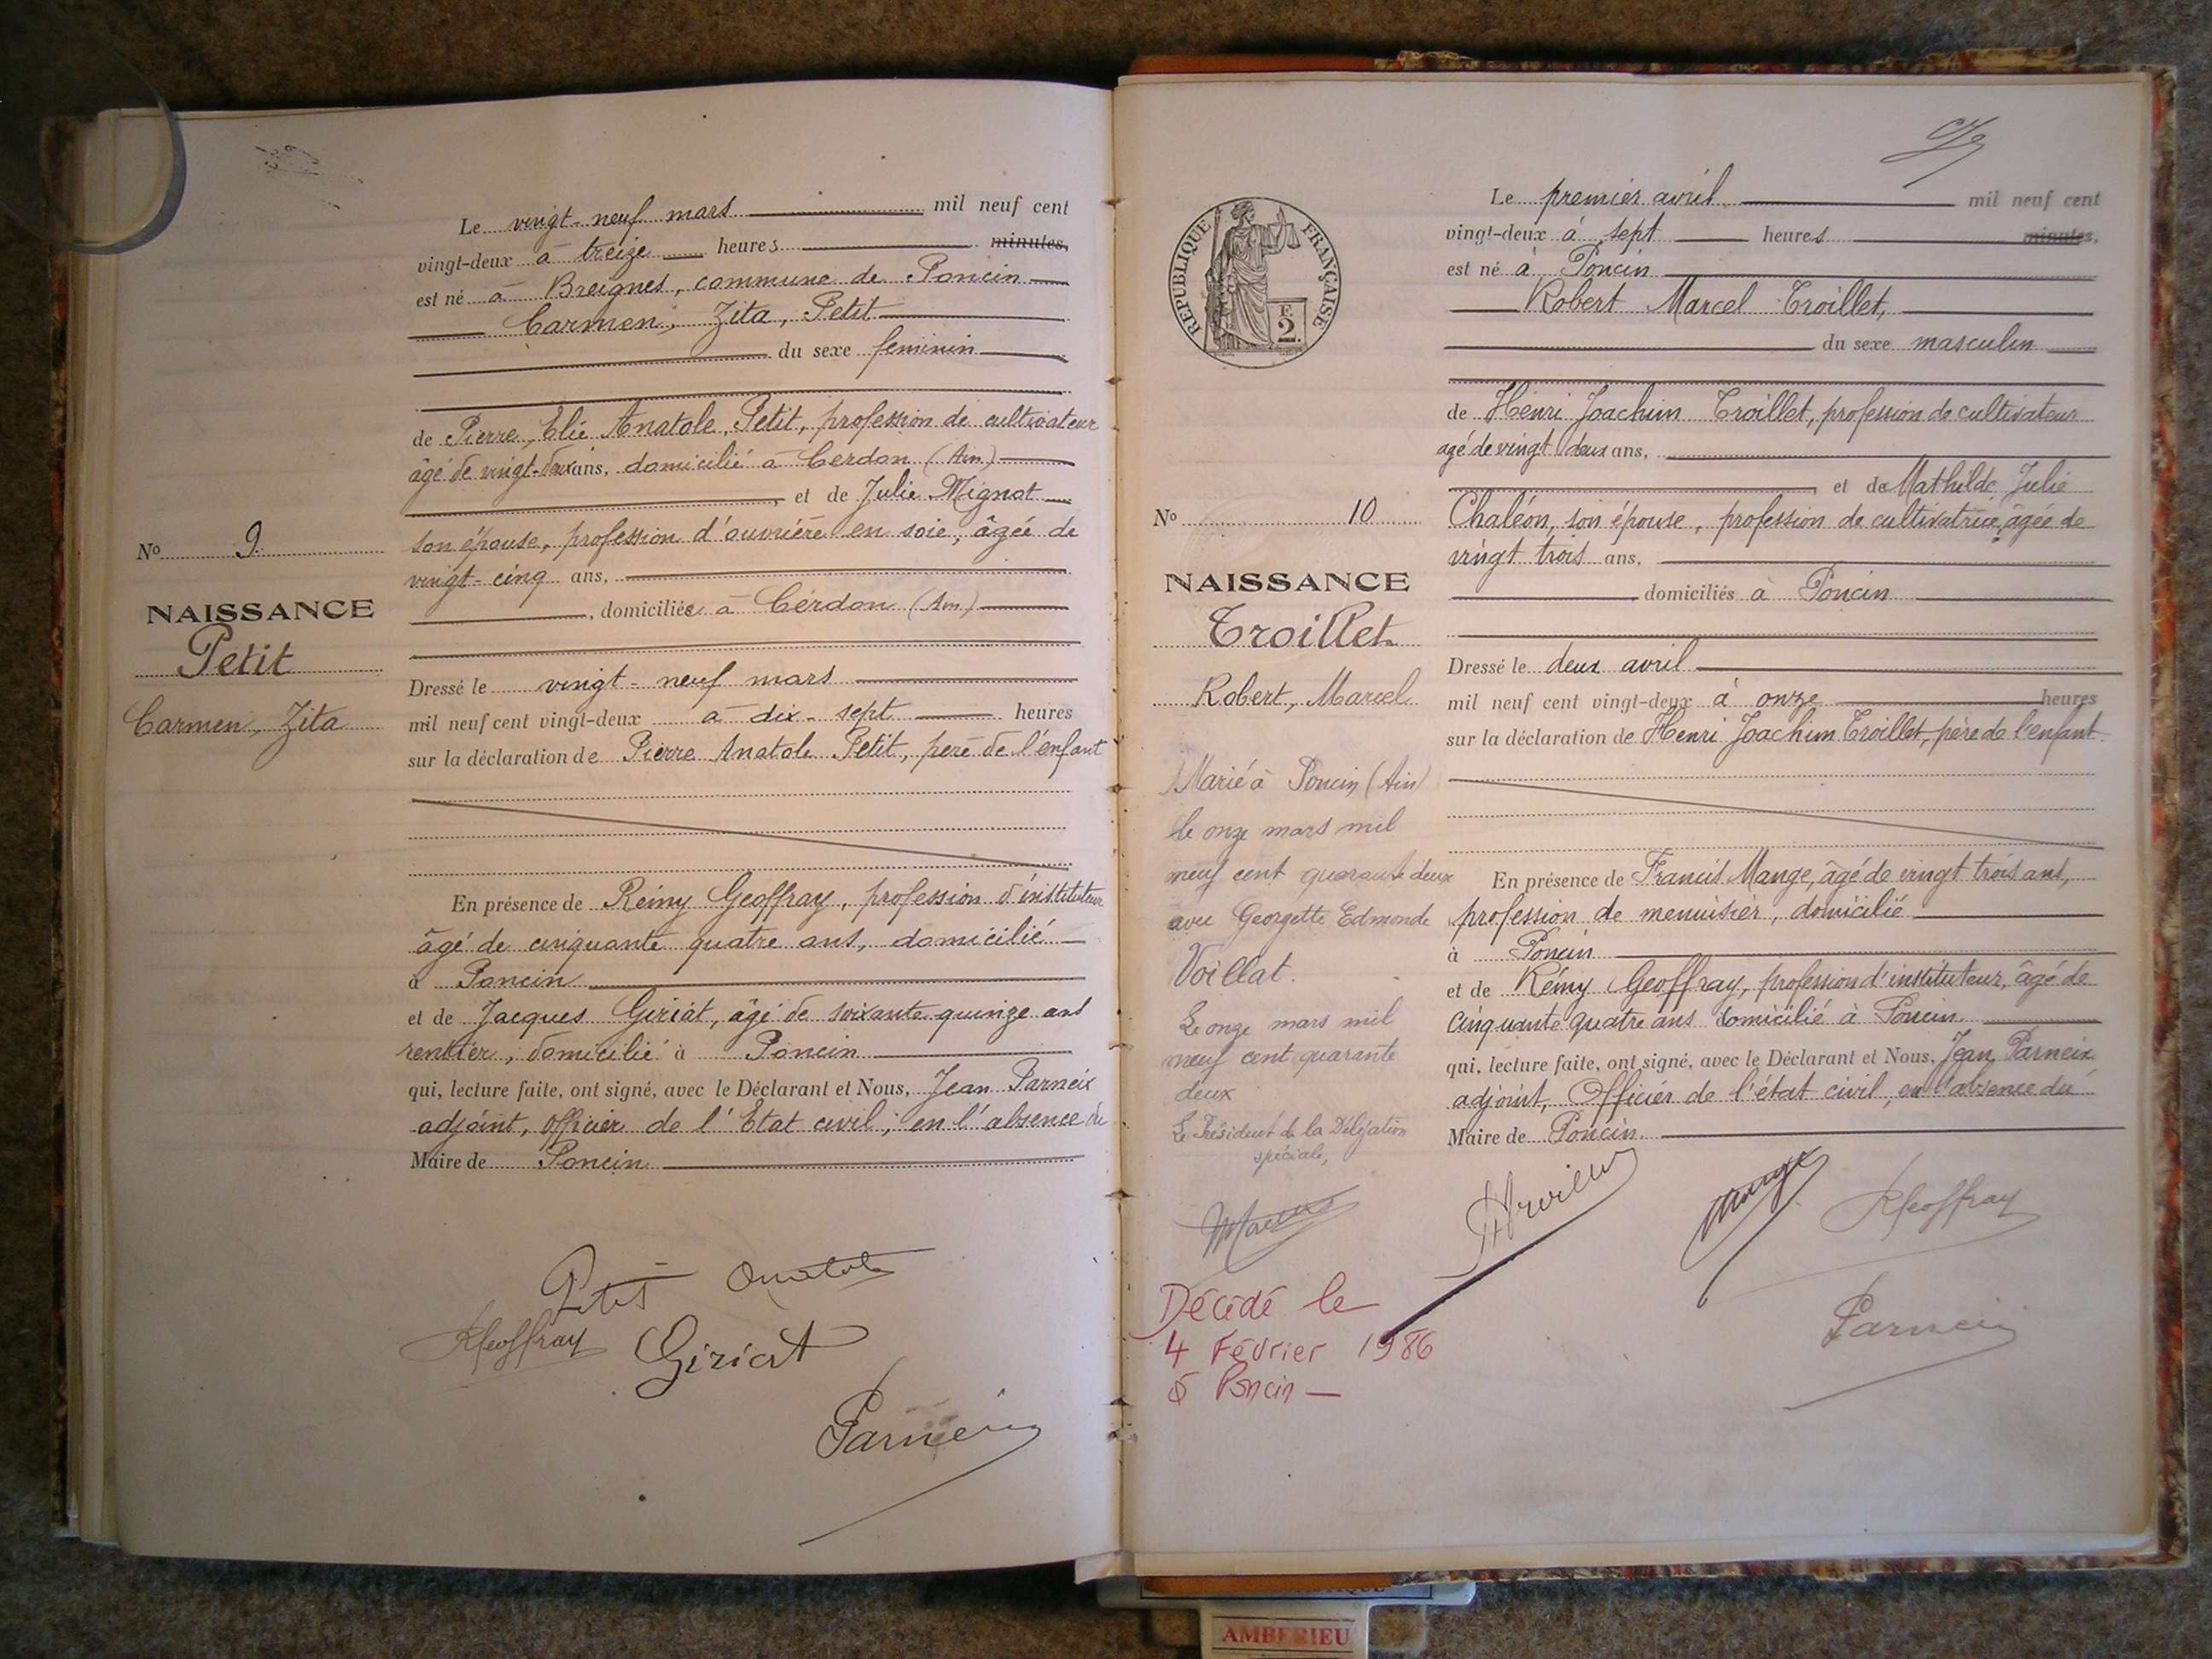 Le vingt-neuf mars mil neuf cent
vingt-deux à treize heures minutes,
est né à Breignes, commune de Poncin
Carmen, Zita, Petit
du sexe feminin
de Pierre, Elie Anatole, Petit, profession de cultivateur
âgé de vingt-deux ans, domicilié à Cerdon (Ain)
et de Julie Mignot
son épouse, profession d'ouvrière en soie, âgée de
vingt-cinq ans,
domiciliée à Cerdon (Ain)
Dressé le vingt-neuf mars
mil neuf cent vingt-deux à dix-sept heures
sur la déclaration de Pierre Anatole Petit, père de l'enfant
En présence de Rémy Geoffray, profession d'instituteur
âgé de cinquante quatre ans, domicilié
à Poncin
et de Jacques Giriat, âgé de soixante-quinze ans
rentier, domicilié à Poncin
qui, lecture faite, ont signé, avec le Déclarant et Nous, Jean Parneix
adjoint, officier de l'Etat civil, en l'absence du
Maire de Poncin
No 9
NAISSANCE
Petit
Carmen, Zita
Petit Anatole
RGeoffray Giriat
Parneix
RÉPUBLIQUE FRANÇAISE
2 F.
Le premier avril mil neuf cent
vingt-deux à sept heures minutes,
est né à Poncin
Robert Marcel Troillet,
du sexe masculin
de Henri Joachim Troillet, profession de cultivateur
agé de vingt deux ans,
et de Mathilde Julie
Chaléon, son épouse, profession de cultivatrice, âgée de
vingt trois ans,
domiciliés à Poncin
Dressé le deux avril
mil neuf cent vingt-deux à onze heures
sur la déclaration de Henri Joachim Troillet, père de l'enfant
En présence de Francis Mange, âgé de vingt trois ans,
profession de menuisier, domicilié
à Poncin
et de Rémy Geoffray, profession d'instituteur, âgé de
cinquante quatre ans domicilié à Poncin
qui, lecture faite, ont signé, avec le Déclarant et Nous, Jean Parneix
adjoint, Officier de l'état civil, en l'absence du
Maire de Poncin
No 10
NAISSANCE
Troillet
Robert, Marcel
Marié à Poncin (Ain)
le onze mars mil
neuf cent quarante deux
avec Georgette Edmonde
Voillat.
Le onze mars mil
neuf cent quarante
deux
Le Président de la Délégation
spéciale,
Décédé le
4 Février 1986
à Poncin
HTroillet Mange RGeoffray
Parneix
AMBERIEU